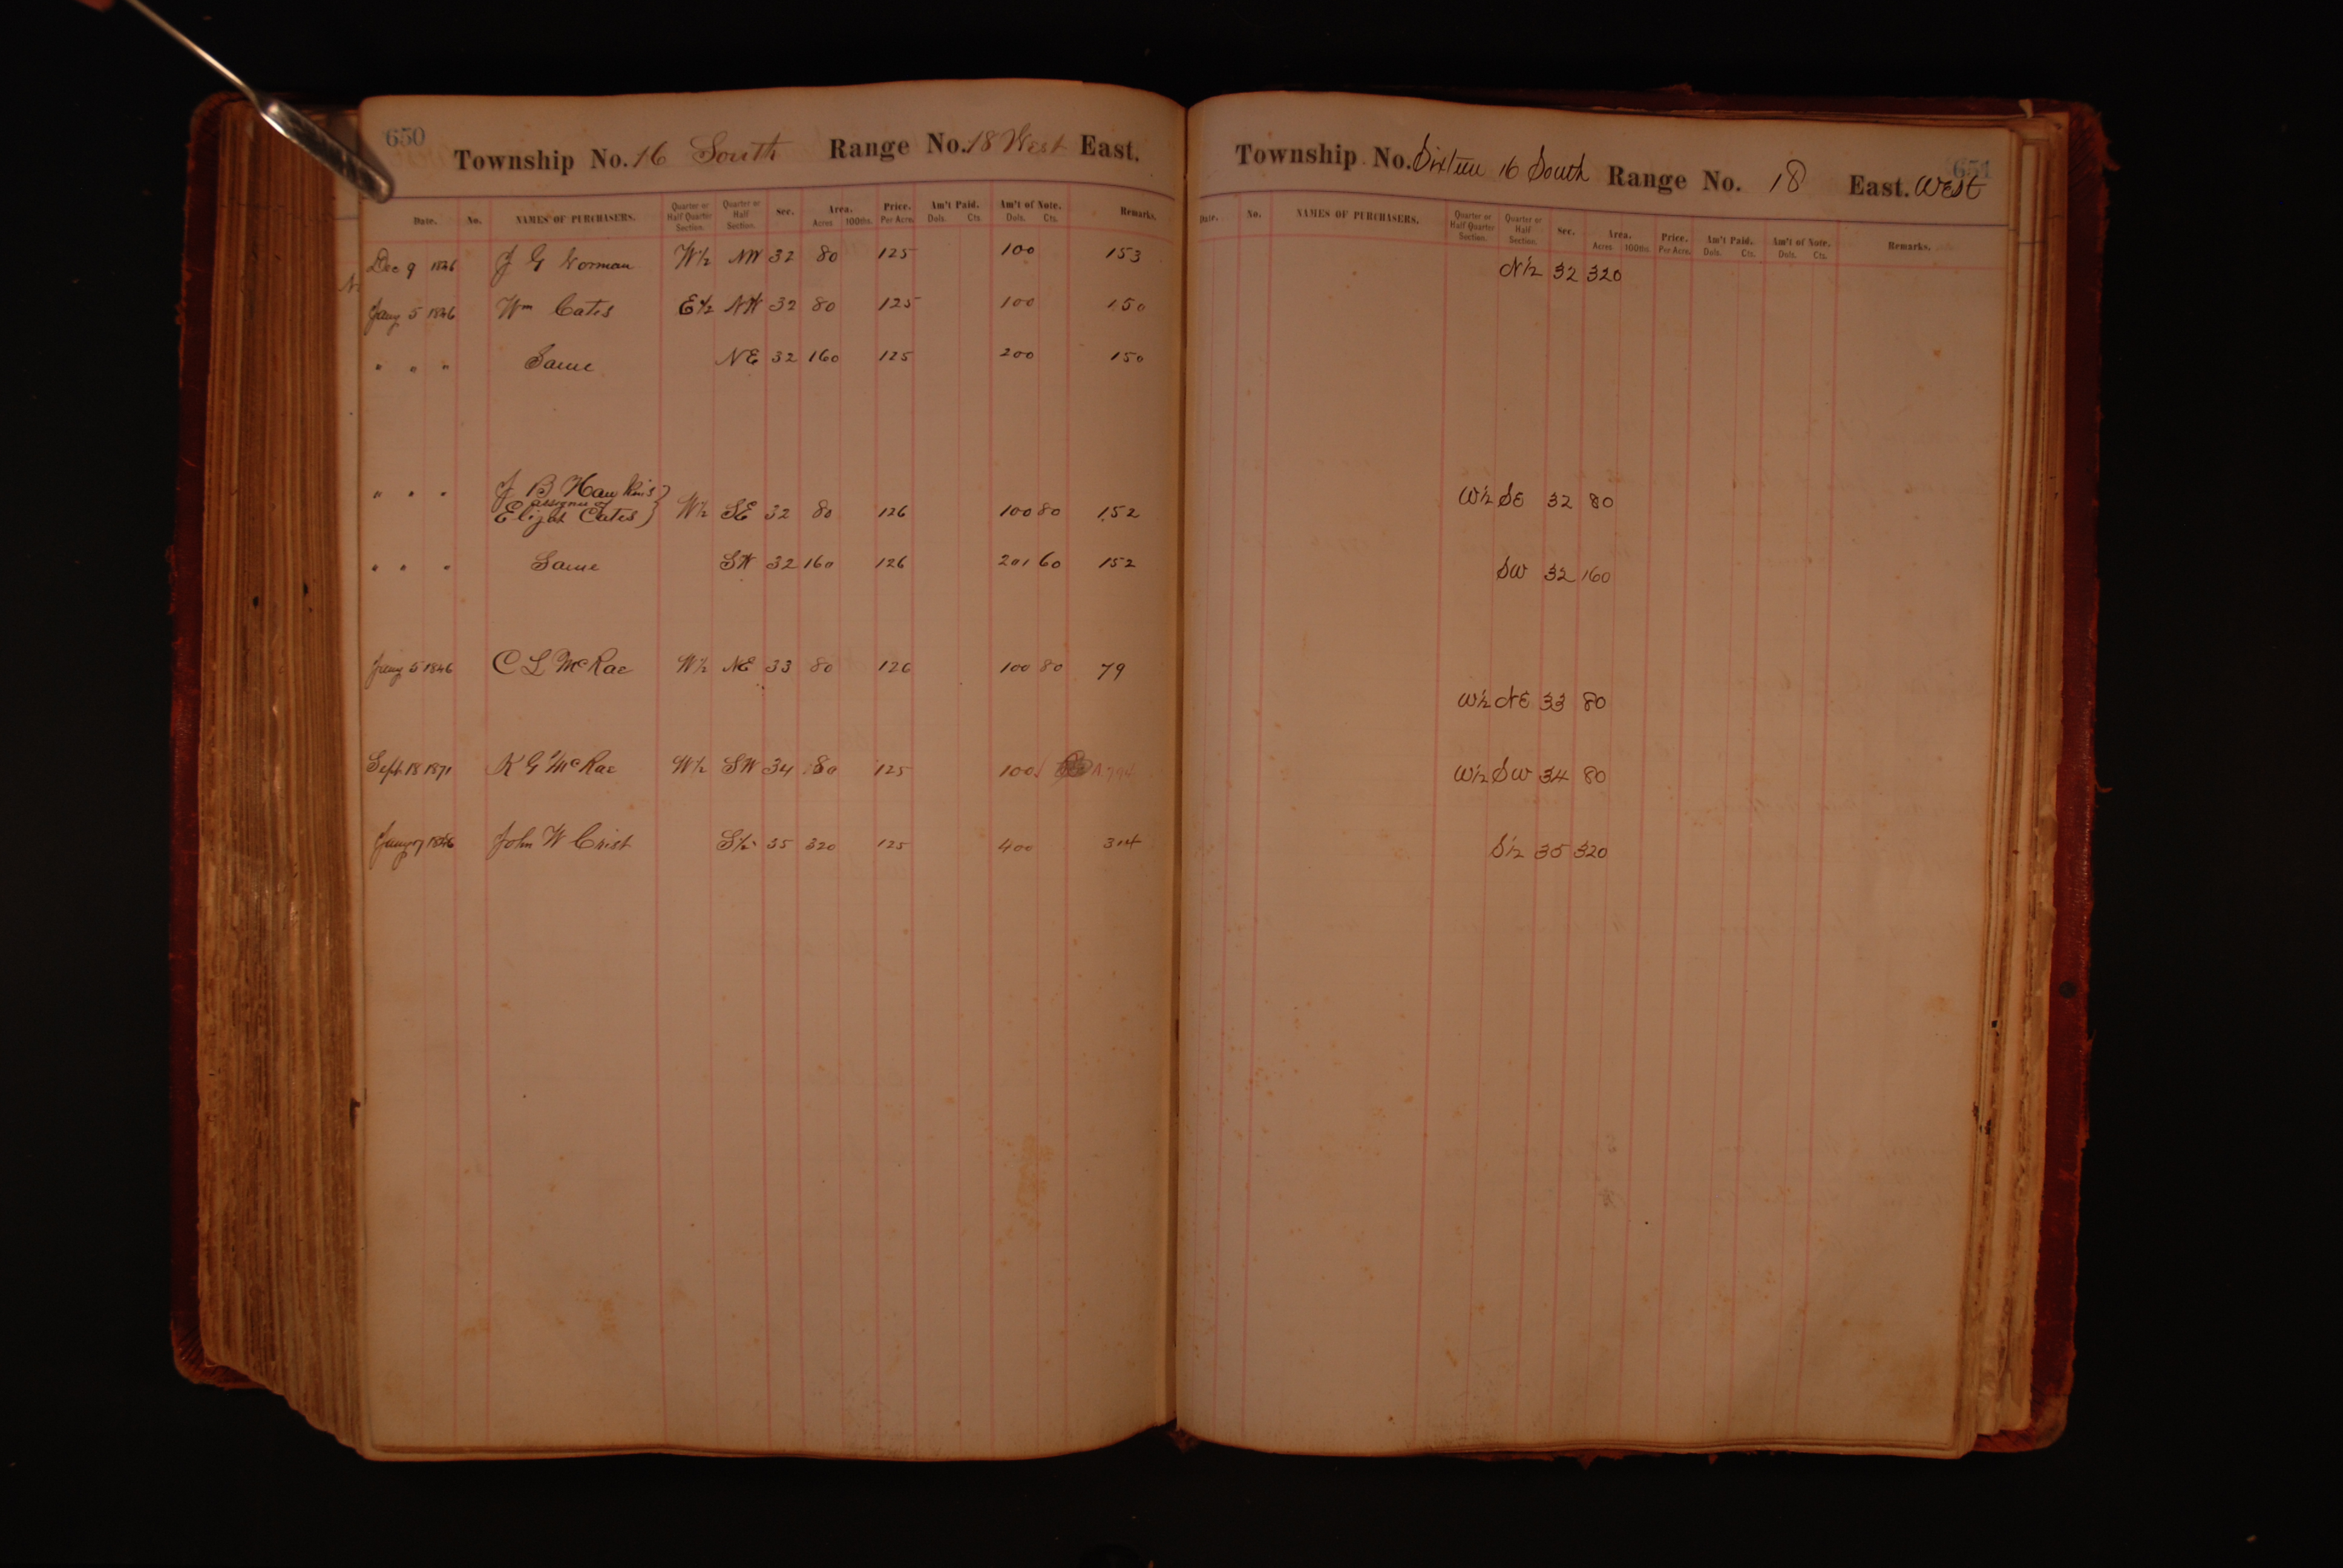 650
Township No. 16 South Range No. 18 West East.
Date. No. NAMES OF PURCHASERS. Quarter or Half Quarter Section. Quarter or Half Section. Sec. Area. Acres 100ths. Price. Per Acre. Am't Paid. Dols. Cts. Am't of Note. Dols. Cts. Remarks.
Dec 9 1846 J G Gorman W½ NW 32 80 125 100 153
Jany 5 1846 Wm Cates E½ NW 32 80 125 100 150
" " " Same NE 32 160 125 200 150
" " " J B Hawkins }
assignee of
Elijah Cates } W½ SE 32 80 126 100 80 152
" " " Same SW 32 160 126 201 60 152
Jany 5 1846 C L McRae W½ NE 33 80 126 100 80 79
Sept 18 1871 K G McRae W½ SW 34 80 125 100
Jany 7 1846 John W Crist S½ 35 320 125 400 314
651
Township No. Sixteen 16 South Range No. 18 East. West
Date. No. NAMES OF PURCHASERS. Quarter or Half Quarter Section. Quarter or Half Section. Sec. Area. Acres 100ths. Price. Per Acre. Am't Paid. Dols. Cts. Am't of Note. Dols. Cts. Remarks.
N½ 32 320
W½ SE 32 80
SW 32 160
W½ NE 33 80
W½ SW 34 80
S½ 35 320